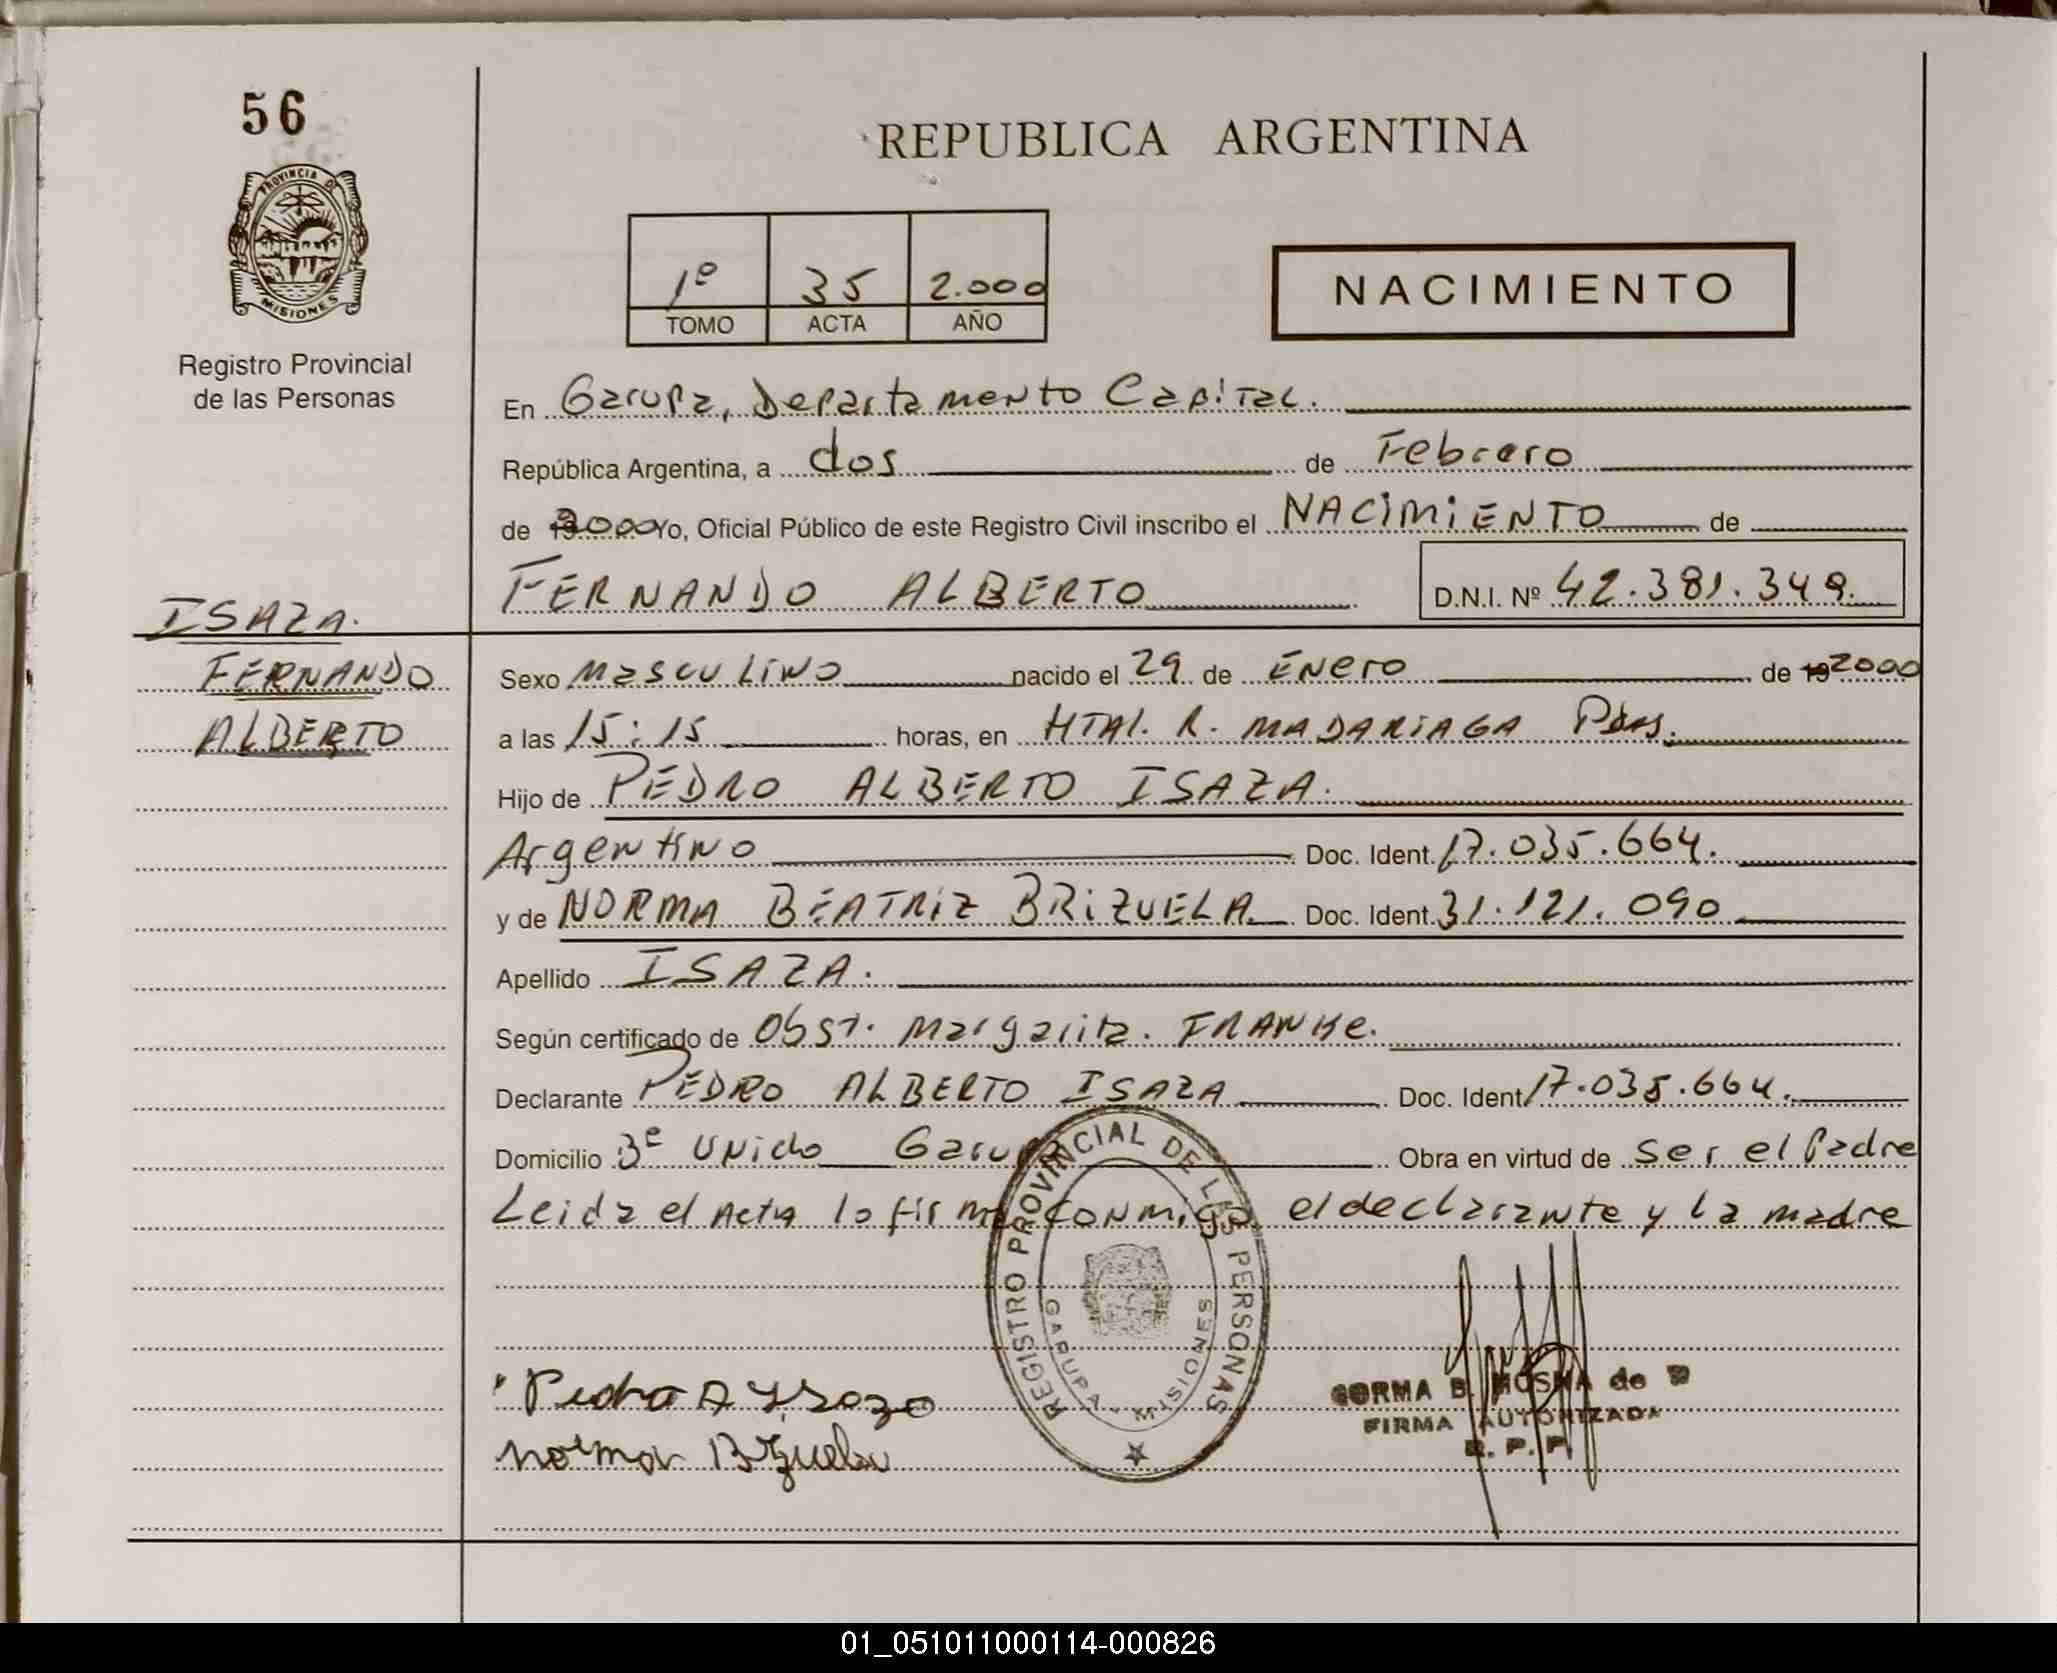 56
REPUBLICA ARGENTINA
PROVINCIA DE
MISIONES
1º 35 2.000
TOMO ACTA AÑO
NACIMIENTO
Registro Provincial
de las Personas
En Garupa, Departamento Capital.
República Argentina, a dos de Febrero
de 2000 Yo, Oficial Público de este Registro Civil inscribo el NACIMIENTO de
FERNANDO ALBERTO D.N.I. Nº 42.381.349.
ISAZA.
FERNANDO
ALBERTO
Sexo Masculino nacido el 29 de Enero de 19 2000
a las 15:15 horas, en HTAL. R. MADARIAGA Pdas.
Hijo de PEDRO ALBERTO ISAZA.
Argentino Doc. Ident. 17.035.664.
y de NORMA BEATRIZ BRIZUELA Doc. Ident. 31.121.090
Apellido ISAZA.
Según certificado de Obst. Margarita. FRANKE.
Declarante PEDRO ALBERTO ISAZA Doc. Ident. 17.035.664.
Domicilio Bº Unido Garupa Obra en virtud de ser el Padre
Leida el Acta la firma conmigo el declarante y la madre
REGISTRO PROVINCIAL DE LAS PERSONAS
GARUPA - MISIONES
Pedro A Ysaza
Norma
FIRMA AUTORIZADA
R. P. P.
01_051011000114-000826